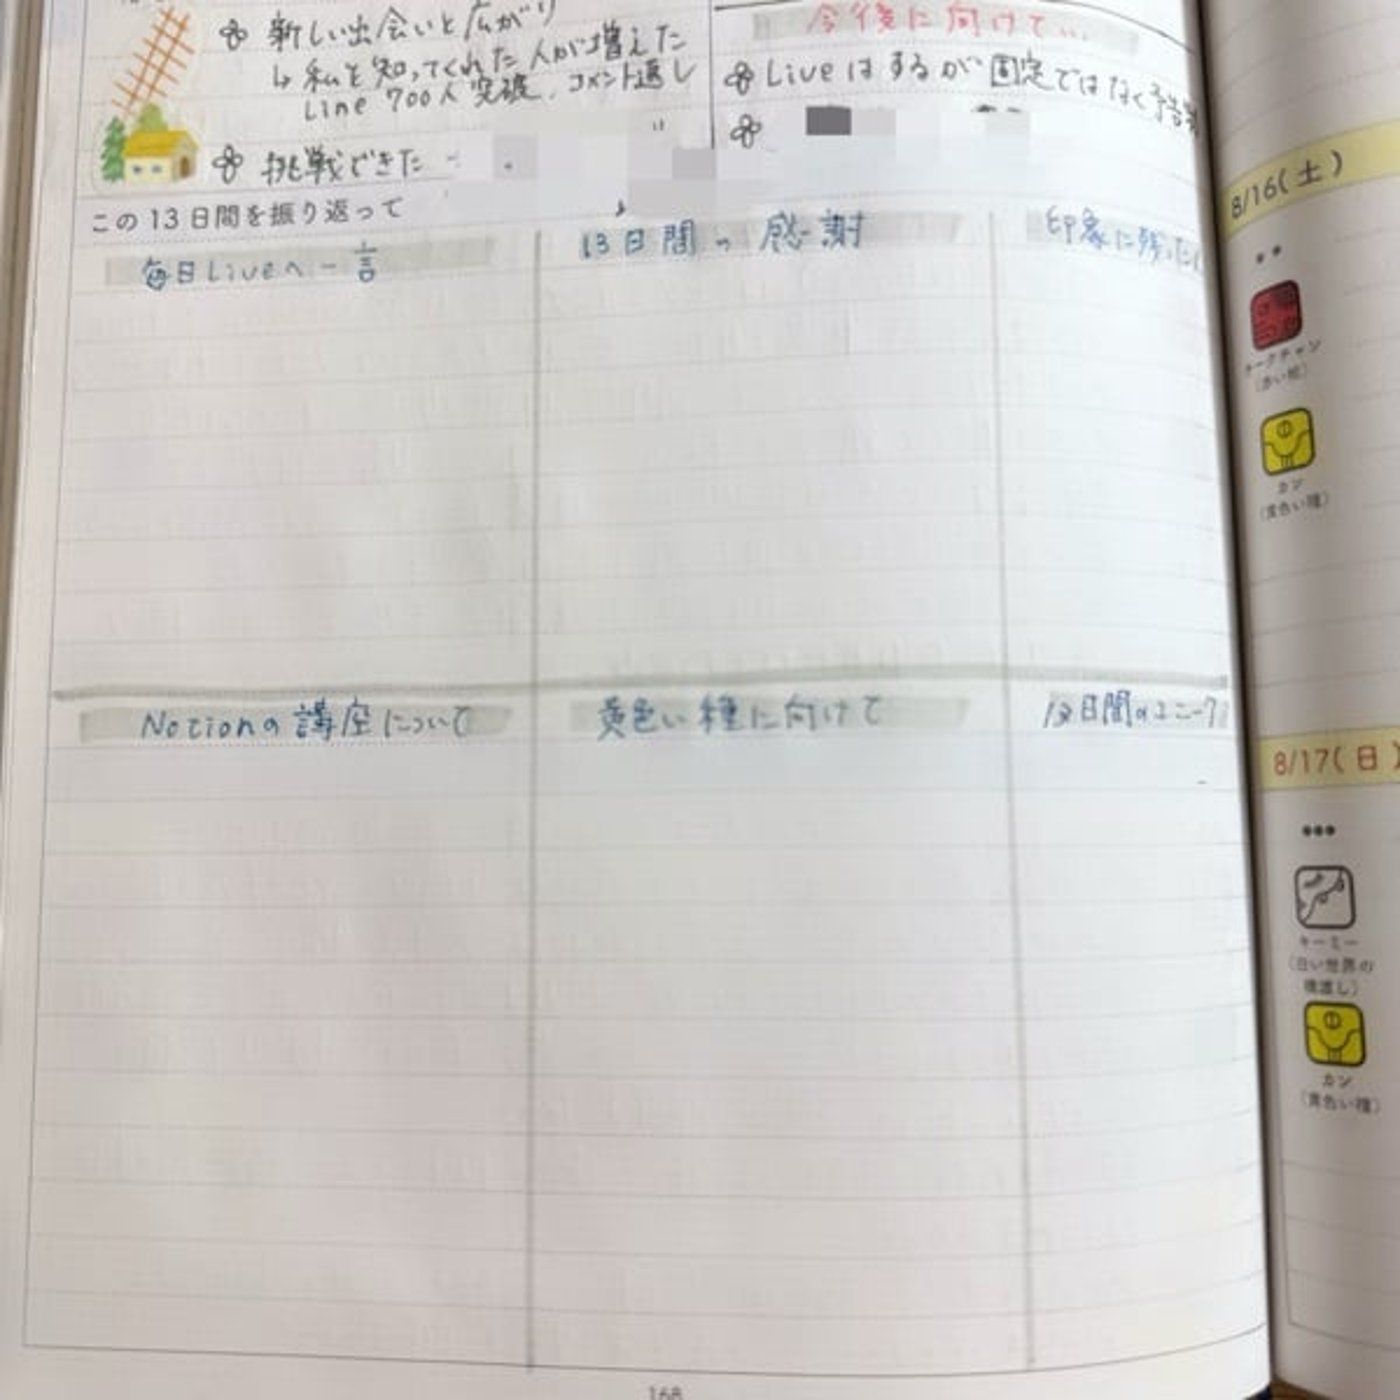 新しい出会いと広がり
↳ 私を知ってくれた人が増えた
Line 700人突破、コメント返し
挑戦できた
今後に向けて…
Liveはするが固定ではなく予告
この13日間を振り返って
毎日Liveへ一言
13日間の感謝
印象に残った
Notionの講座について
黄色い種に向けて
13日間のユニーク
168
8/16(土)
(赤い蛇)
カン
(黄色い種)
8/17(日)
キーミー
(白い世界の
橋渡し)
カン
(黄色い種)